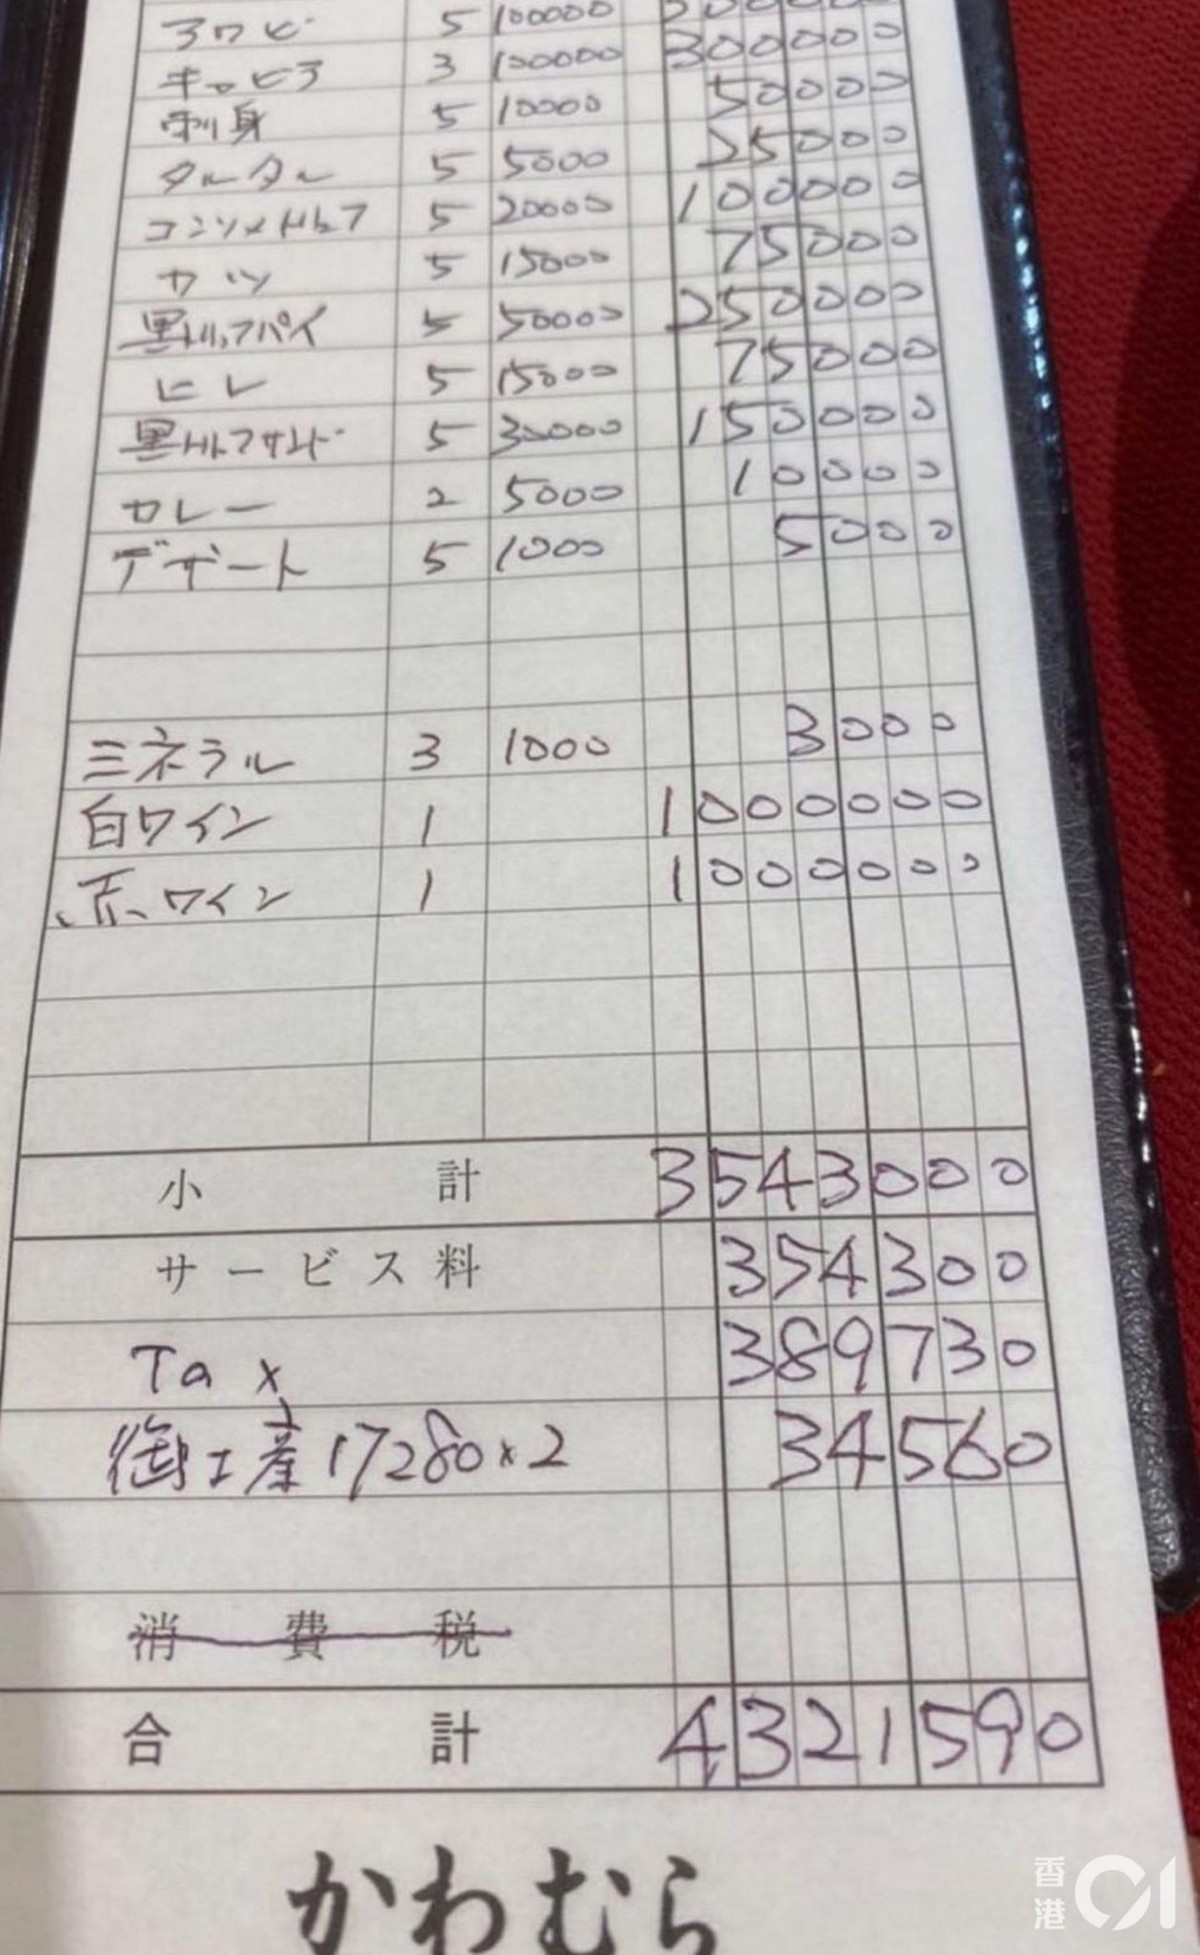 アワビ 5 100000 500000
キャビア 3 100000 300000
刺身 5 10000 50000
タルタル 5 5000 25000
コンソメトリュフ 5 20000 100000
カツ 5 15000 75000
黒トリュフパイ 5 50000 250000
ヒレ 5 15000 75000
黒トリュフサンド 5 30000 150000
カレー 2 5000 10000
デザート 5 1000 5000
ミネラル 3 1000 3000
白ワイン 1 1000000
赤ワイン 1 1000000
小計 3543000
サービス料 354300
Tax 389730
御土産 17280×2 34560
消費税
合計 4321590
かわむら
香港01